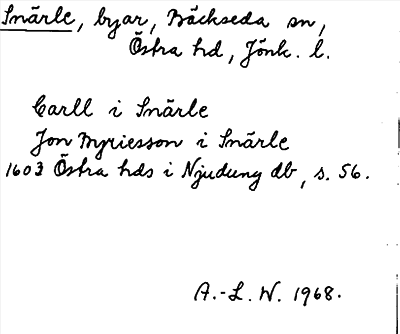 Snärle, byar, Bäckseda sn,
Östra hd, Jönk. l.
Carll i Snärle
Jon Myriesson i Snärle
1603 Östra hds i Njudung db, s. 56.
A.-L. W. 1968.